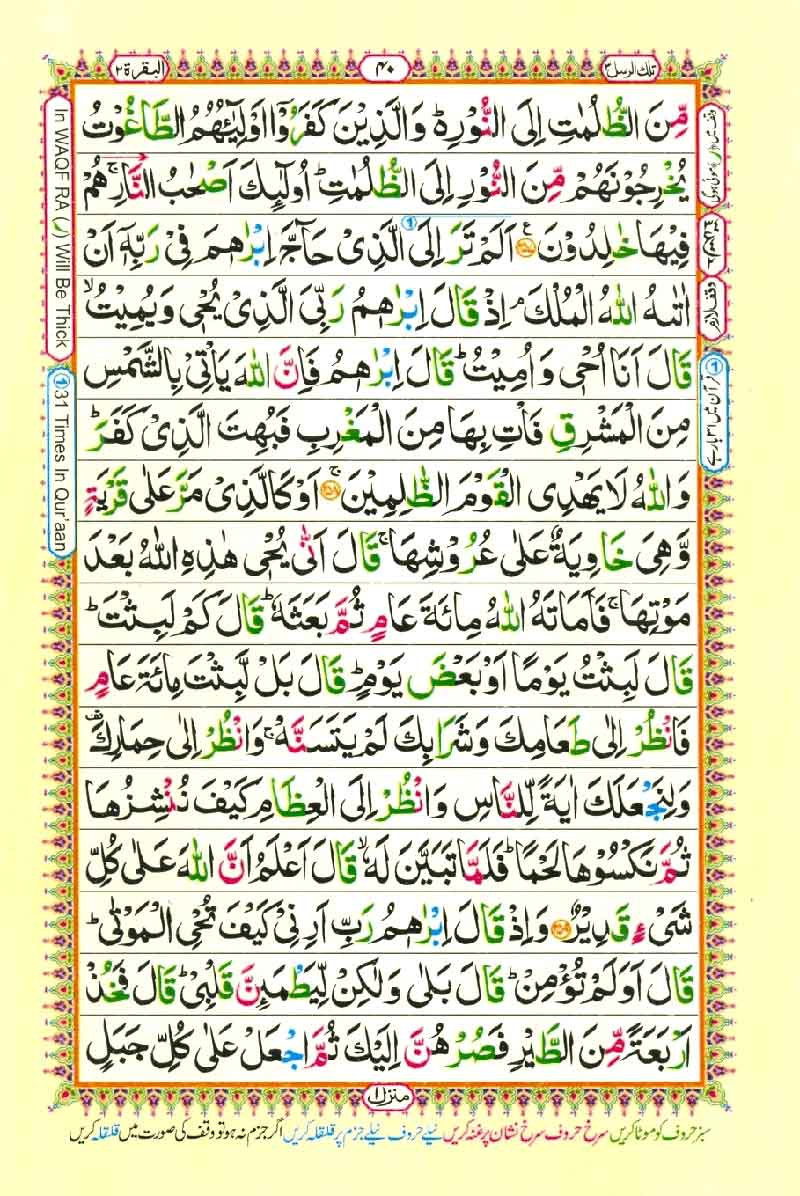 تلك الرسل ٣
٤٠
البقرة ٢
مِّنَ الظُّلُمٰتِ اِلَى النُّوْرِ۬ؕ وَالَّذِيْنَ كَفَرُوْۤا اَوْلِيٰٓـُٔهُمُ الطَّاغُوْتُ
يُخْرِجُوْنَهُمْ مِّنَ النُّوْرِ اِلَى الظُّلُمٰتِ ؕ اُولٰٓئِكَ اَصْحٰبُ النَّارِ ۚ هُمْ
فِيْهَا خٰلِدُوْنَ ﴿٢٥٧﴾ اَلَمْ تَرَ اِلَى الَّذِيْ حَآجَّ اِبْرٰهٖمَ فِيْ رَبِّهٖۤ اَنْ
اٰتٰىهُ اللّٰهُ الْمُلْكَ ۘ اِذْ قَالَ اِبْرٰهٖمُ رَبِّيَ الَّذِيْ يُحْيٖ وَيُمِيْتُ ۙ
قَالَ اَنَا اُحْيٖ وَاُمِيْتُ ؕ قَالَ اِبْرٰهٖمُ فَاِنَّ اللّٰهَ يَاْتِيْ بِالشَّمْسِ
مِنَ الْمَشْرِقِ فَاْتِ بِهَا مِنَ الْمَغْرِبِ فَبُهِتَ الَّذِيْ كَفَرَ ؕ
وَاللّٰهُ لَا يَهْدِي الْقَوْمَ الظّٰلِمِيْنَ ﴿٢٥٨﴾ اَوْ كَالَّذِيْ مَرَّ عَلٰى قَرْيَةٍ
وَّهِيَ خَاوِيَةٌ عَلٰى عُرُوْشِهَا ۚ قَالَ اَنّٰى يُحْيٖ هٰذِهِ اللّٰهُ بَعْدَ
مَوْتِهَا ۚ فَاَمَاتَهُ اللّٰهُ مِائَةَ عَامٍ ثُمَّ بَعَثَهٗ ؕ قَالَ كَمْ لَبِثْتَ ؕ
قَالَ لَبِثْتُ يَوْمًا اَوْ بَعْضَ يَوْمٍ ؕ قَالَ بَلْ لَّبِثْتَ مِائَةَ عَامٍ
فَانْظُرْ اِلٰى طَعَامِكَ وَشَرَابِكَ لَمْ يَتَسَنَّهْ ۚ وَانْظُرْ اِلٰى حِمَارِكَ
وَلِنَجْعَلَكَ اٰيَةً لِّلنَّاسِ وَانْظُرْ اِلَى الْعِظَامِ كَيْفَ نُنْشِزُهَا
ثُمَّ نَكْسُوْهَا لَحْمًا ؕ فَلَمَّا تَبَيَّنَ لَهٗ ۙ قَالَ اَعْلَمُ اَنَّ اللّٰهَ عَلٰى كُلِّ
شَيْءٍ قَدِيْرٌ ﴿٢٥٩﴾ وَاِذْ قَالَ اِبْرٰهٖمُ رَبِّ اَرِنِيْ كَيْفَ تُحْيِ الْمَوْتٰى ؕ
قَالَ اَوَلَمْ تُؤْمِنْ ؕ قَالَ بَلٰى وَلٰكِنْ لِّيَطْمَئِنَّ قَلْبِيْ ؕ قَالَ فَخُذْ
اَرْبَعَةً مِّنَ الطَّيْرِ فَصُرْهُنَّ اِلَيْكَ ثُمَّ اجْعَلْ عَلٰى كُلِّ جَبَلٍ
منزل ١
سبز حروف کو موٹا کریں سرخ حروف سرخ نشان پر غنہ کریں نیلے حروف نیلے جزم پر قلقلہ کریں اگر جزم نہ ہو تو وقف کی صورت میں قلقلہ کریں
In WAQF RA (ر) Will Be Thick
① 31 Times In Qur'aan
وقف لازم